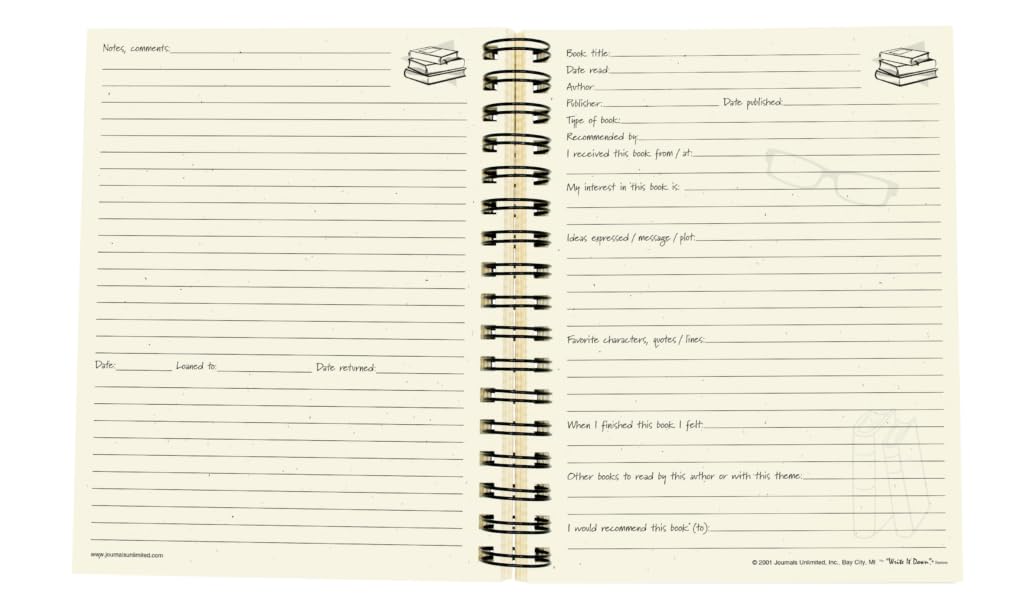 Notes, comments:
Date: Loaned to: Date returned:
www.journalsunlimited.com
Book title:
Date read:
Author:
Publisher: Date published:
Type of book:
Recommended by:
I received this book from / at:
My interest in this book is:
Ideas expressed / message / plot:
Favorite characters, quotes / lines:
When I finished this book I felt:
Other books to read by this author or with this theme:
I would recommend this book (to):
© 2001 Journals Unlimited, Inc., Bay City, MI ~ "Write It Down"